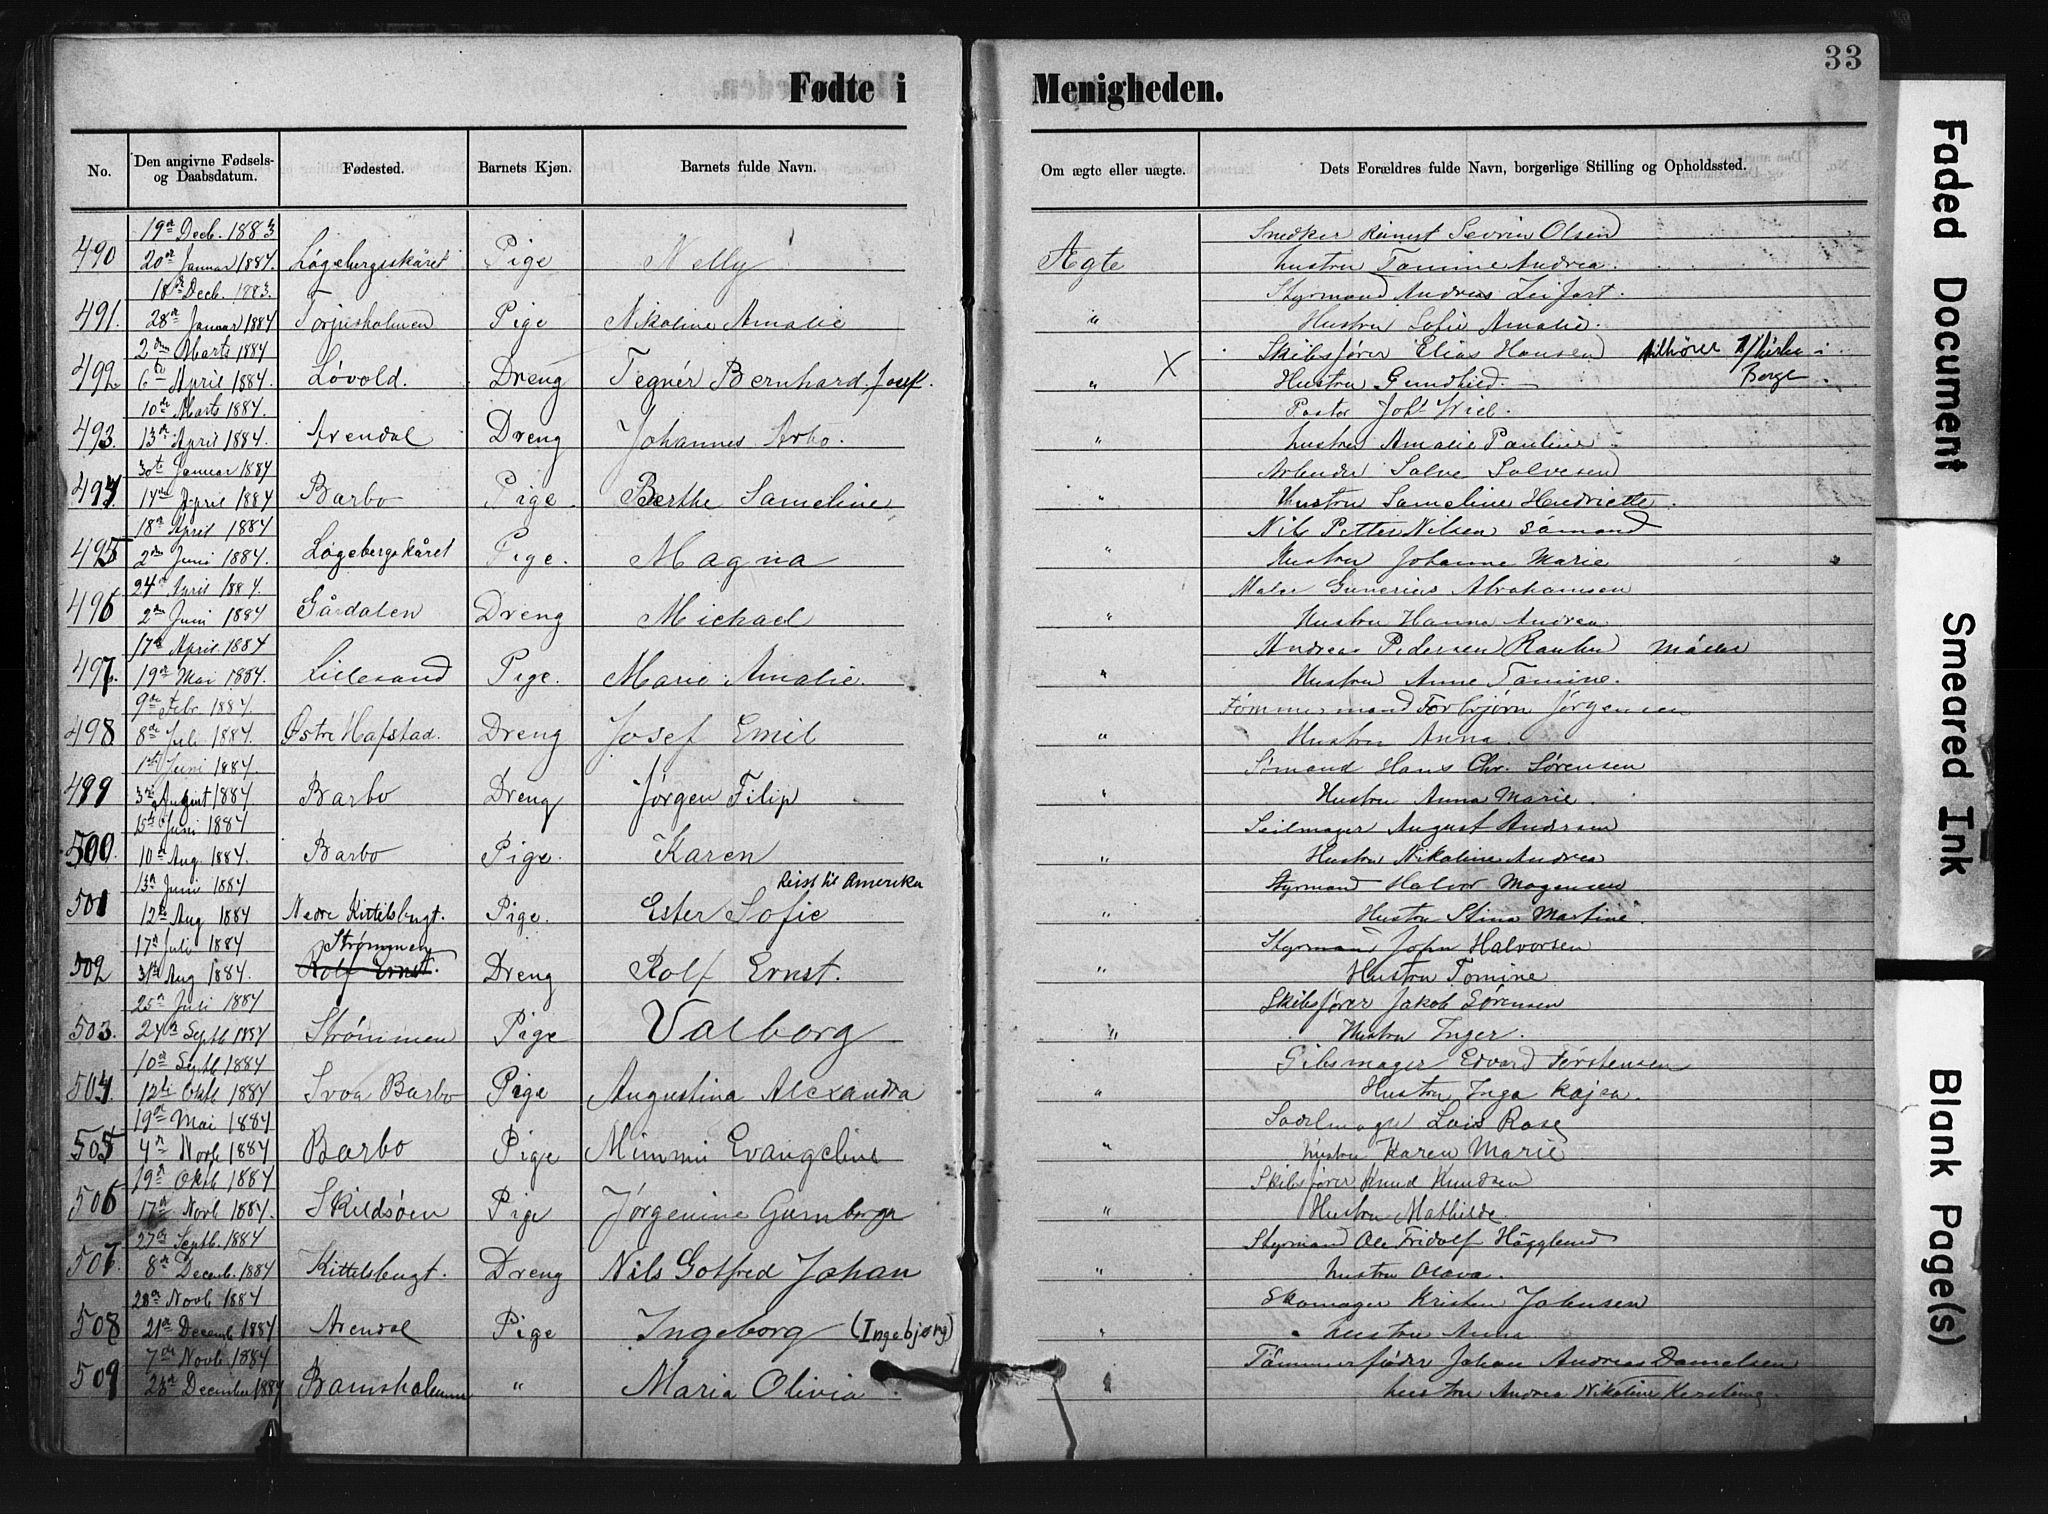 33
Fødte i Menigheden.
No. Den angivne Fødsels- og Daabsdatum. Fødested. Barnets Kjøn. Barnets fulde Navn. Om ægte eller uægte. Dets Forældres fulde Navn, borgerlige Stilling og Opholdssted.
19de Decb. 1883 Snedker Sevrin Olsen
490 20de Januar 1884. Løgebergsskåret Pige Nelly Ægte hustru Tomine Andrea.
18de Decb. 1883. Styrmand Andreas Leifart.
491. 28de Januar 1884 Torjusholmen Pige Nikoline Amalie " Hustru Sofie Amalie.
2den Marts 1884 Skibsfører Elias Hansen tilhører i
492 6te April 1884. Løvold. Dreng Tegnér Bernhard Josef. " X Hustru Gundhild. Borge.
10de Marts 1884. Pastor Johs Wiel.
493. 13de April 1884. Arendal Dreng Johannes Arbo. " hustru Amalie Pauline.
30te Januar 1884 Arbeider Salve Salvesen
494. 14de April 1884 Barbo Pige. Berthe Sameline " Hustru Sameline Hendriette.
18de April 1884 Nils Petter Nilsen Sømand
495 2den Juni 1884. Løgebergskåret Pige. Magna " Hustru Johanne Marie
24de April 1884. Maler Gunerius Abrahamsen
496 2den Juni 1884 Gårdalen Dreng Michael " Hustru Hanna Andrea
17de April 1884 Andreas Pedersen Møller
497. 19de Mai 1884. Lillesand Pige. Marie Amalie. " Hustru Anne Tomine.
9de Febr. 1884. Tømmermand Torbjørn Jørgensen
498 8de Juli 1884. Østre Hafstad. Dreng Josef Emil " Hustru Anna.
1ste Juni 1884. Sømand Hans Chr. Sørensen
499 3die August 1884. Barbo Dreng Jørgen Filip " Hustru Anna Marie.
15de Juni 1884 Seilmager August Andersen
500. 10de Aug. 1884. Barbo Pige. Karen " Hustru Nikoline Andrea
13de Juni 1884 Reist til Amerika Styrmand Halvor Mogensen
501 12te Aug 1884 Nedre Kittelsbugt. Pige. Ester Sofie " Hustru Stina Martine
17de Juli 1884 Strømmen Styrmand John Halvorsen
502 31te Aug 1884. Rolf Ernst. Dreng Rolf Ernst. " Hustru Tomine
25de Juli 1884 Skibsfører Jakob Sørensen
503. 24de Septb 1884 Strømmen Pige Valborg " Hustru Inger.
10de Septb 1884 Gibsmager Edvard Torstensen
504. 12te Oktb 1884 Svoa Barbo Pige Augustina Alexandra " Hustru Inga Kajea.
19de Mai 1884 Lois Rose
505 4de Novb 1884 Barbo Pige Mimmi Evangeline " hustru Karen Marie
19de Oktb 1884 Skibsfører Knud Knudsen
506 17de Novb 1884. Skildsøen Pige Jørgenine " Hustru Mathilde.
27de Septb. 1884 Styrmand Ole Fridolf Hägglund
507. 8de Decemb. 1884 Kittelsbugt. Dreng Nils Gotfred Johan " hustru Olava.
28de Novb 1884 Skomager Kristen Johnsen
508 21de Decemb 1884 Arendal Pige Ingeborg (Ingebjørg) " hustru Anna
7de Novb 1884 Tømmerfløder Johan Andreas Danielsen
509 28de December 1884 " Maria Olivia. " hustru Andrea Nikoline Kerstine.
Faded Document
Smeared Ink
Blank Page(s)